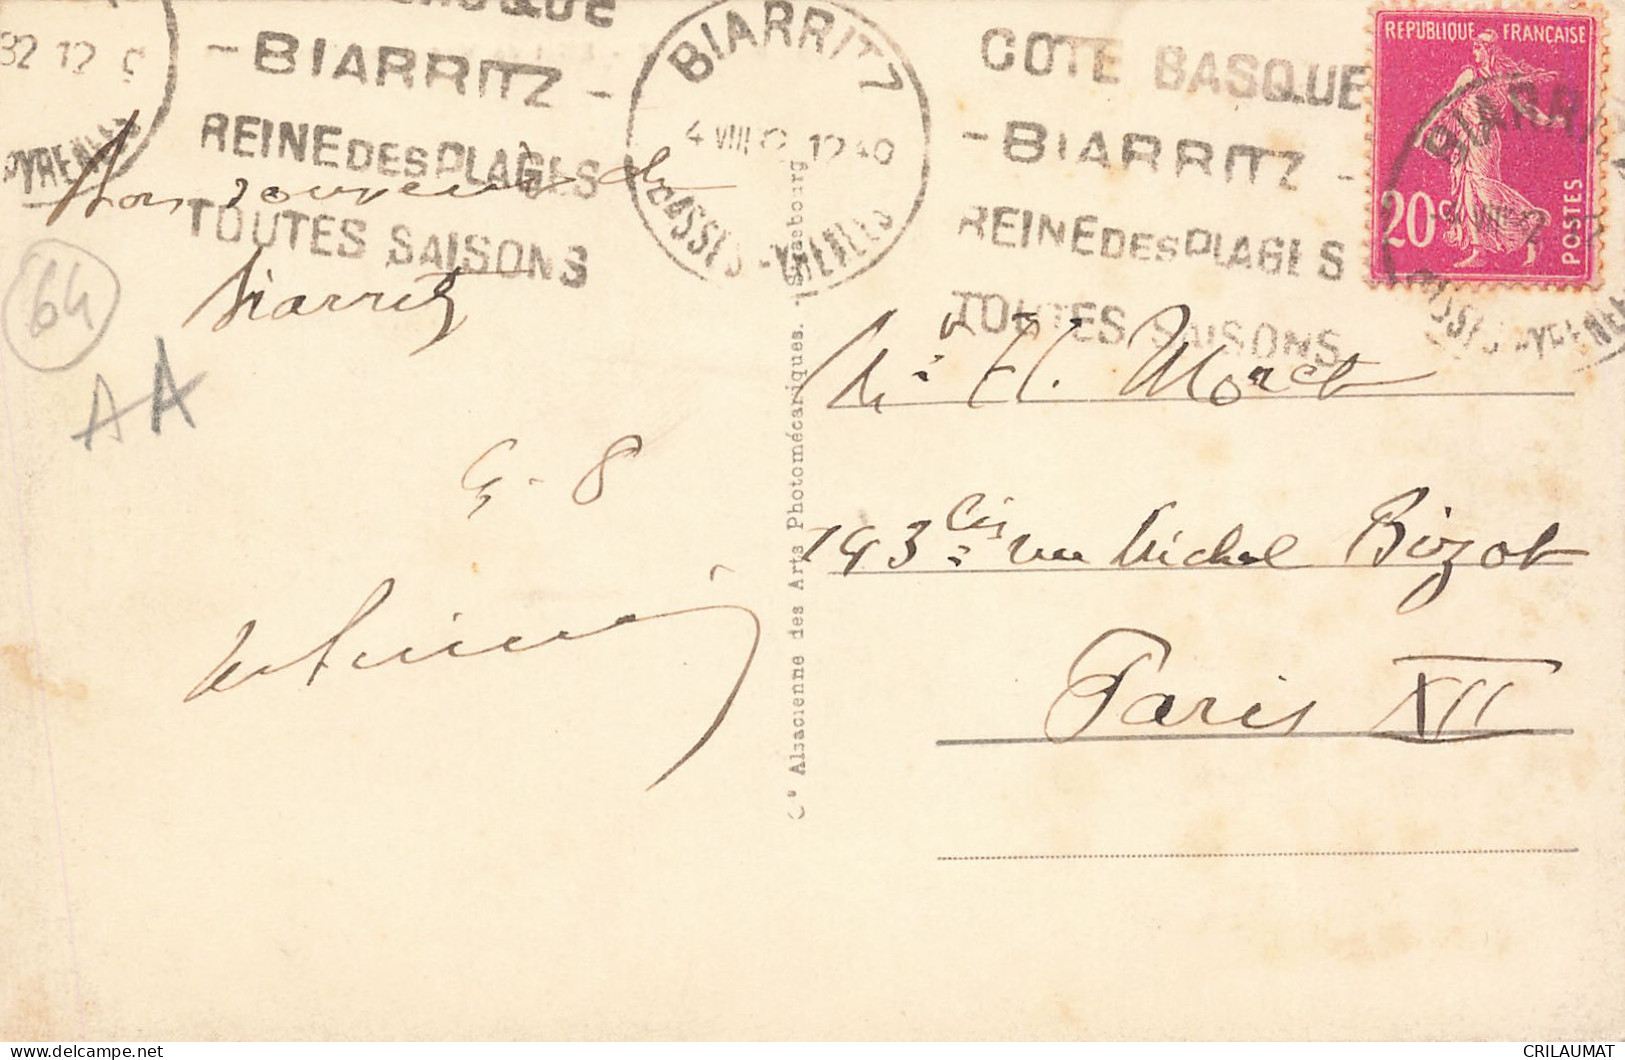 BASQUE
- BIARRITZ -
REINE DES PLAGES
TOUTES SAISONS
32 12
PYRENEES
BIARRITZ
4 VIII 32 12 40
BASSES-PYRENEES
COTE BASQUE
- BIARRITZ -
REINE DES PLAGES
TOUTES SAISONS
REPUBLIQUE FRANÇAISE
20c
POSTES
BIARRITZ
BASSES-PYRENEES
Bon souvenir de
Biarritz
64
AA
4-8
Cie Alsacienne des Arts Photomécaniques. - Strasbourg
Mr H. Moret
193 bis rue Michel Bizot
Paris XII
CRILAUMAT